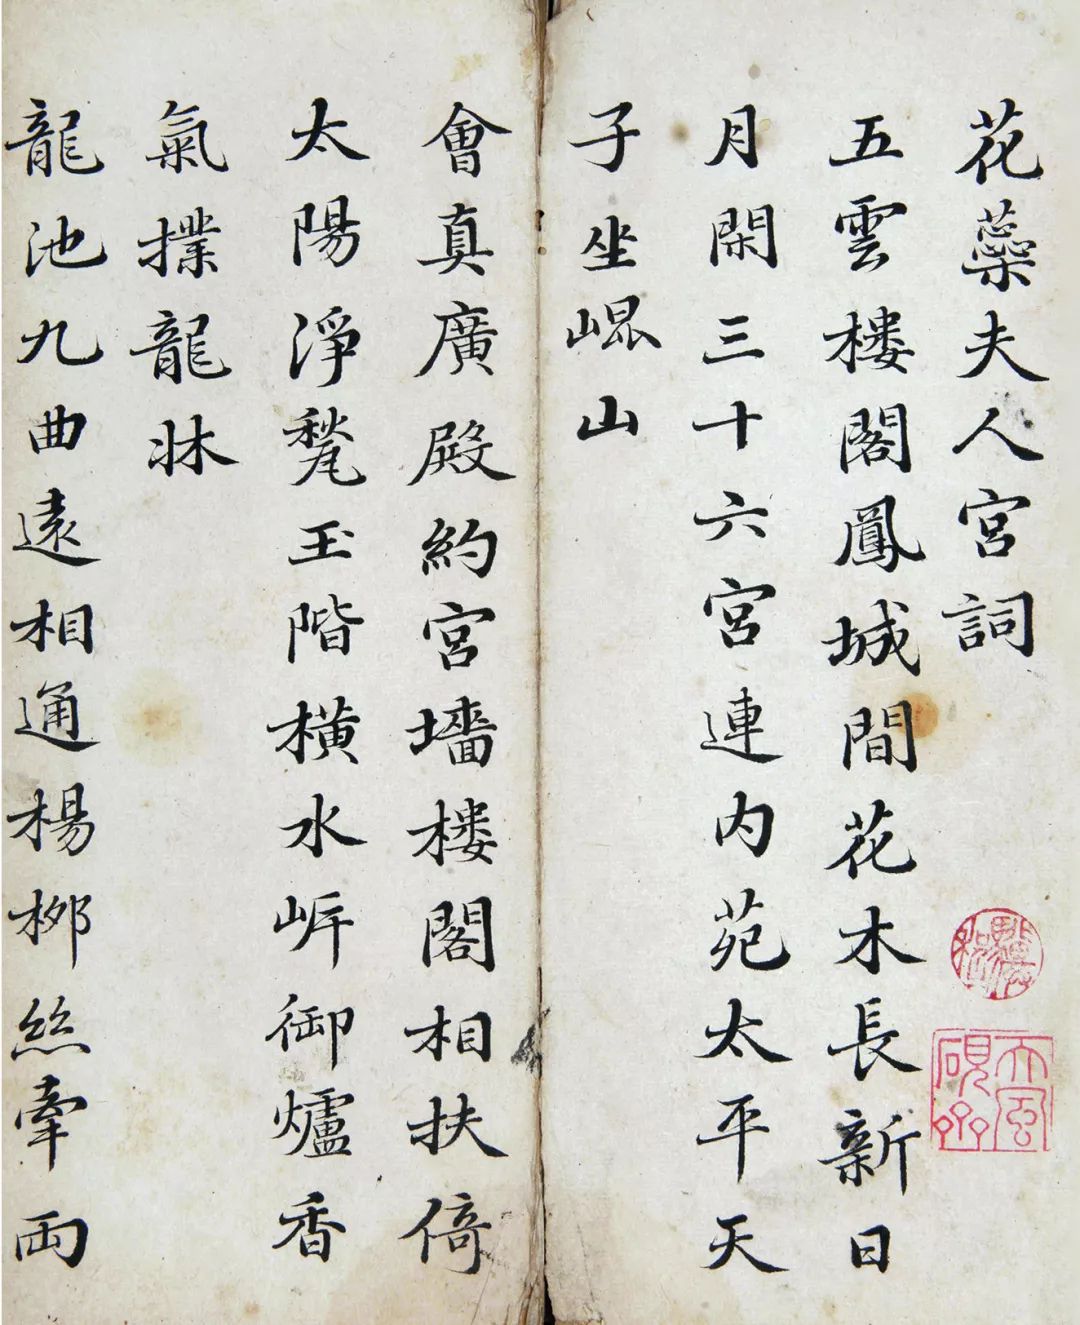 花蘂夫人宮詞
五雲樓閣鳳城間花木長新日
月閑三十六宮連內苑太平天
子坐崐山
會真廣殿約宮墻樓閣相扶倚
太陽淨甃玉階橫水岸御爐香
氣撲龍牀
龍池九曲遠相通楊柳絲牽兩